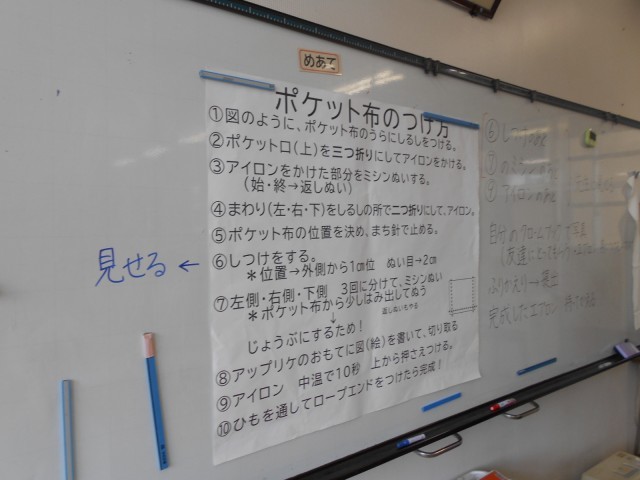 めあて
ポケット布のつけ方
①図のように、ポケット布のうらにしるしをつける。
②ポケット口(上)を三つ折りにしてアイロンをかける。
③アイロンをかけた部分をミシンぬいする。
(始・終→返しぬい)
④まわり(左・右・下)をしるしの所で二つ折りにして、アイロン。
⑤ポケット布の位置を決め、まち針で止める。
見せる ← ⑥しつけをする。
＊位置→外側から1㎝位 ぬい目→2㎝
⑦左側・右側・下側 3回に分けて、ミシンぬい
＊ポケット布から少しはみ出してぬう
↓ 返しぬいもやる
じょうぶにするため！
⑧アップリケのおもてに図(絵)を書いて、切り取る
⑨アイロン 中温で10秒 上から押さえつける。
⑩ひもを通してロープエンドをつけたら完成！
⑥しつけ
⑦ミシン
⑨アイロン
自分の 写真
ふりかえり→提出
完成したエプロン